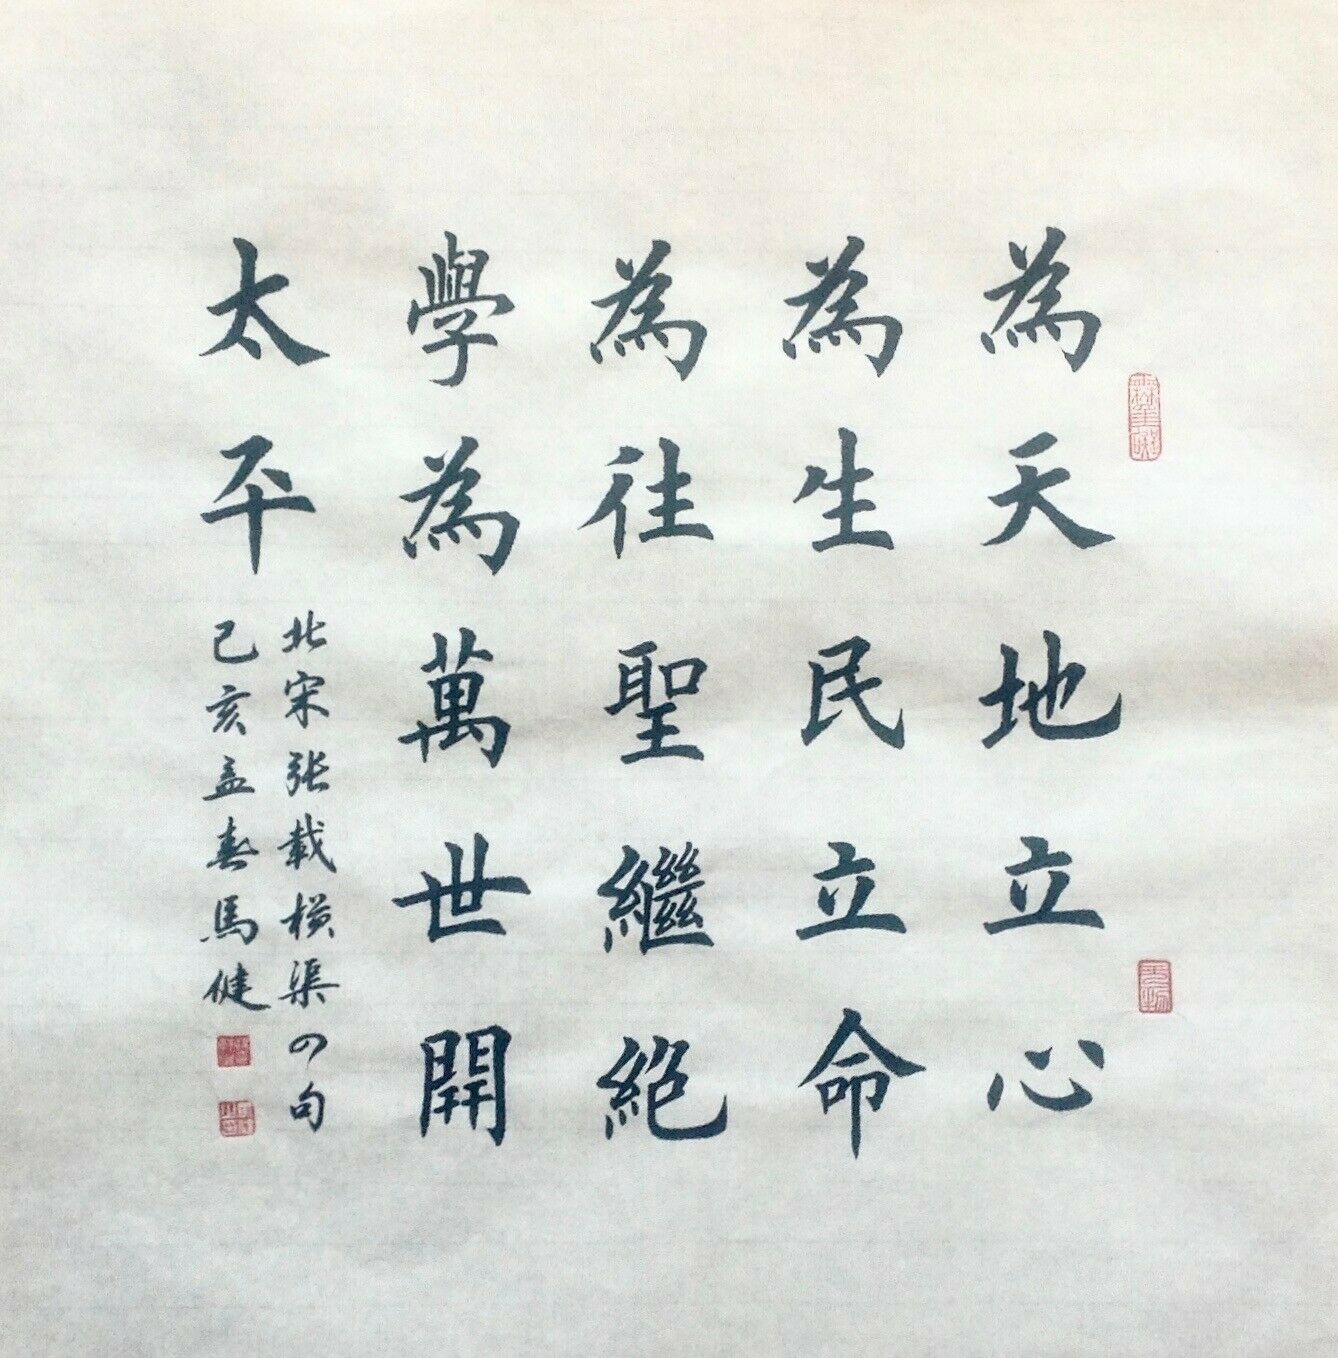 為天地立心
為生民立命
為往聖繼絕
學為萬世開
太平
北宋张載横渠四句
己亥孟春馬健